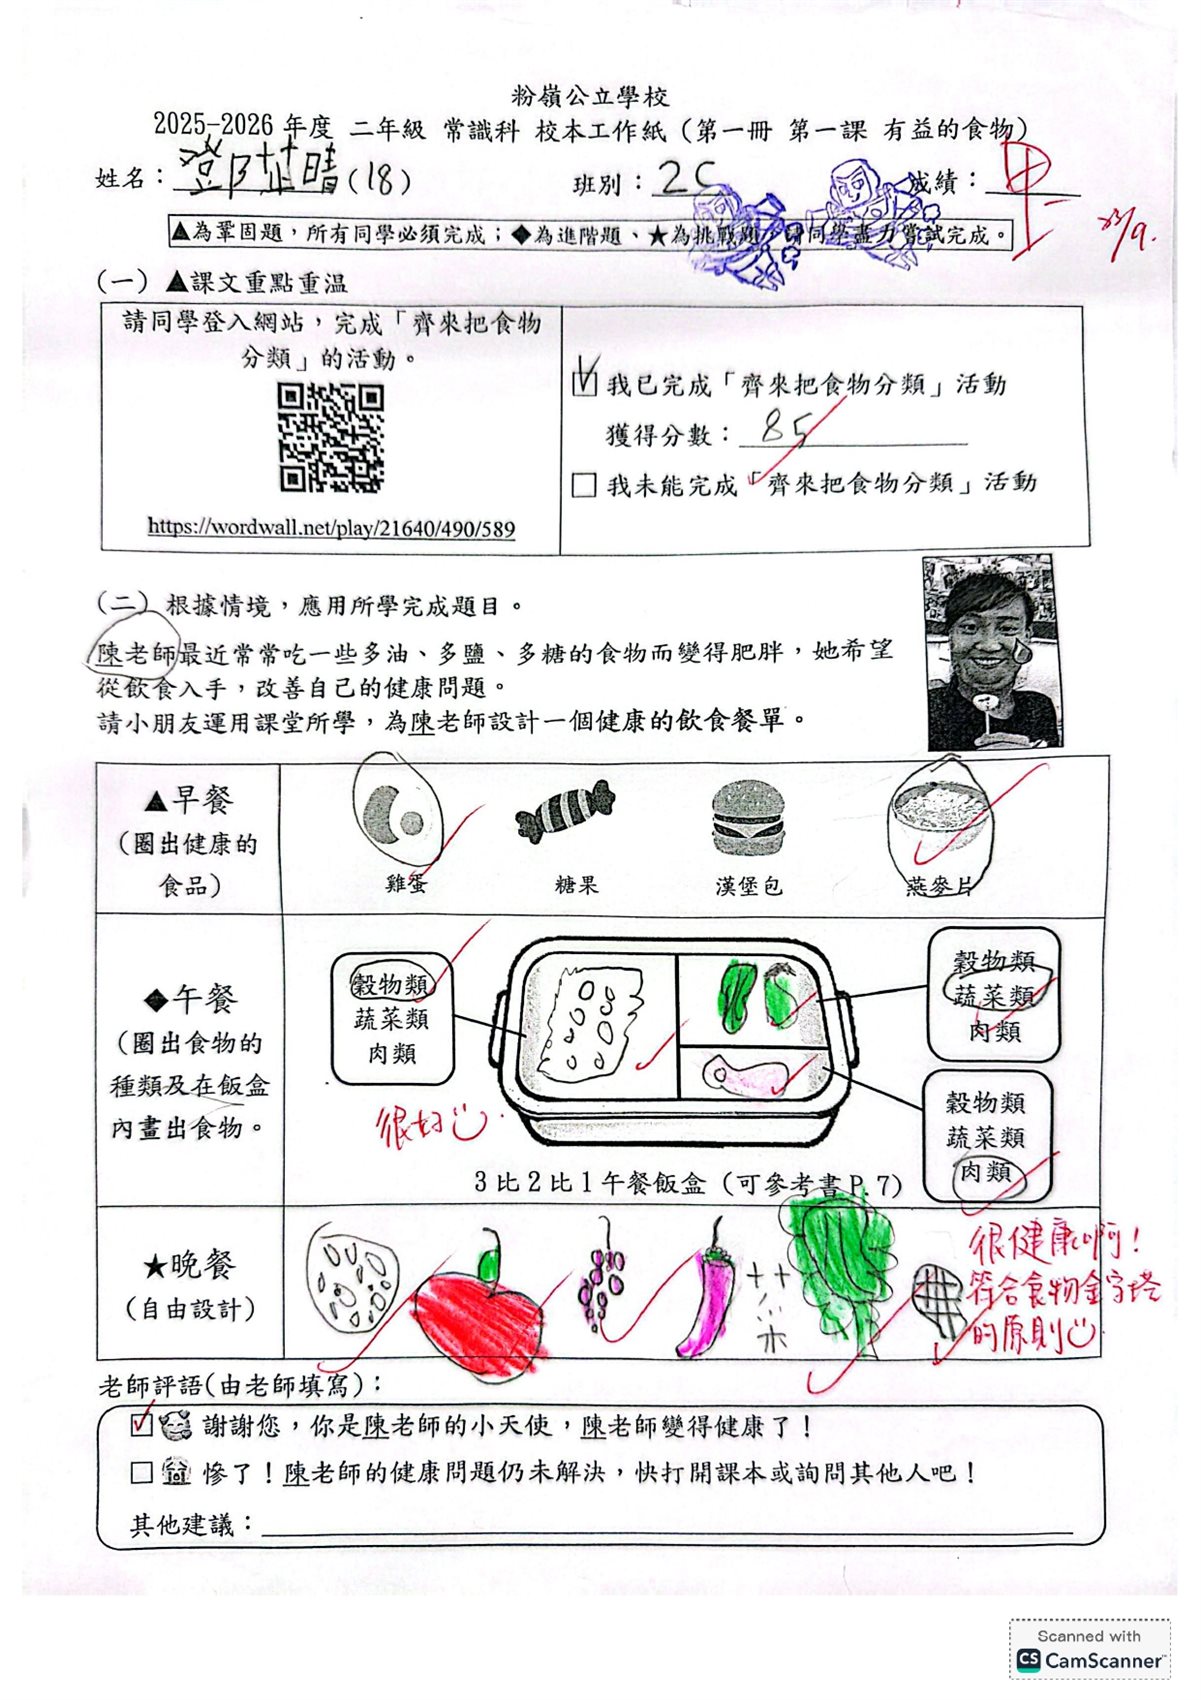 粉嶺公立學校
2025-2026 年度 二年級 常識科 校本工作紙（第一冊 第一課 有益的食物）
姓名：鄧芷晴(18) 班別：2C 成績：甲-
23/9.
▲為鞏固題，所有同學必須完成；◆為進階題、★為挑戰題，請同學盡力嘗試完成。
（一）▲課文重點重温
請同學登入網站，完成「齊來把食物
分類」的活動。
https://wordwall.net/play/21640/490/589
☑ 我已完成「齊來把食物分類」活動
獲得分數：85
□ 我未能完成「齊來把食物分類」活動
（二）根據情境，應用所學完成題目。
陳老師最近常常吃一些多油、多鹽、多糖的食物而變得肥胖，她希望
從飲食入手，改善自己的健康問題。
請小朋友運用課堂所學，為陳老師設計一個健康的飲食餐單。
▲早餐
（圈出健康的
食品）
雞蛋 糖果 漢堡包 燕麥片
◆午餐
（圈出食物的
種類及在飯盒
內畫出食物。
穀物類
蔬菜類
肉類
穀物類
蔬菜類
肉類
穀物類
蔬菜類
肉類
很好
3 比 2 比 1 午餐飯盒（可參考書 P.7）
★晚餐
（自由設計）
菜
很健康啊！
符合食物金字塔
的原則
老師評語(由老師填寫)：
☑ 謝謝您，你是陳老師的小天使，陳老師變得健康了！
□ 慘了！陳老師的健康問題仍未解決，快打開課本或詢問其他人吧！
其他建議：
Scanned with
CS CamScanner